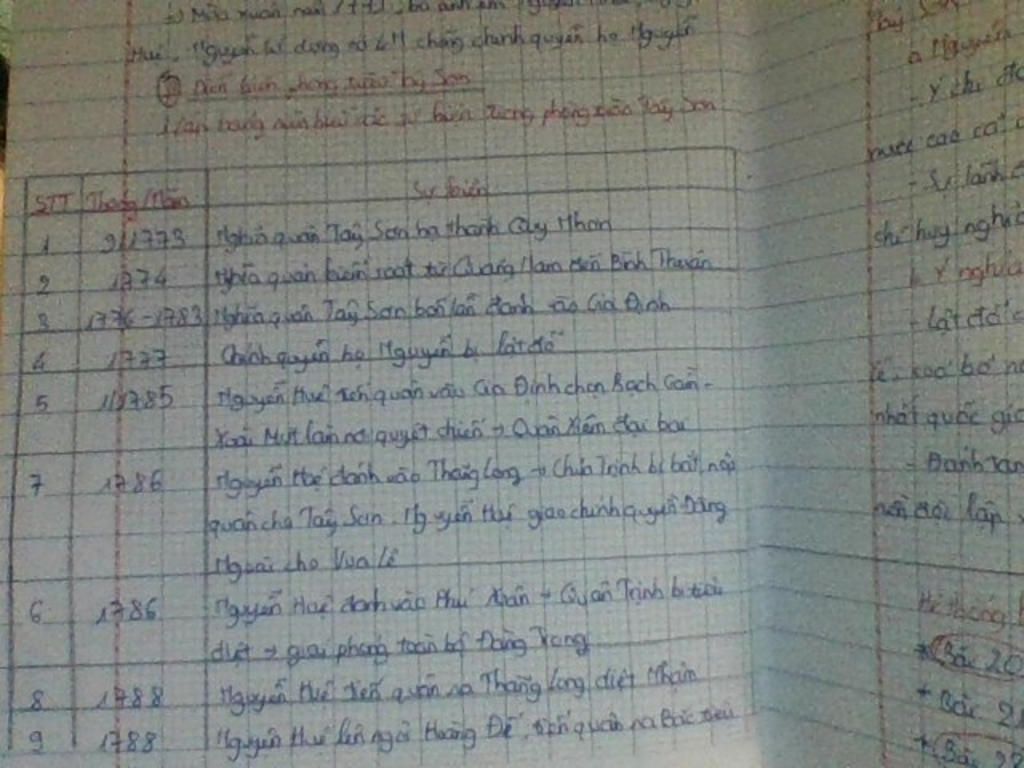 b) Mùa xuân năm 1771, ba anh em Nguyễn
Huệ, Nguyễn Lữ dựng cờ chống chính quyền họ Nguyễn
Diễn biến phong trào Tây Sơn
bảng niên biểu các sự kiện trong phong trào Tây Sơn
STT Tháng/Năm Sự kiện
1 9/1773 Nghĩa quân Tây Sơn hạ thành Quy Nhơn
2 1774 Nghĩa quân kiểm soát từ Quảng Nam đến Bình Thuận
3 1776-1783 Nghĩa quân Tây Sơn bốn lần đánh vào Gia Định
4 1777 Chính quyền họ Nguyễn bị lật đổ
5 1/1785 Nguyễn Huệ tiến quân vào Gia Định chọn Rạch Gầm -
Xoài Mút làm nơi quyết chiến → Quân Xiêm đại bại
7 1786 Nguyễn Huệ đánh vào Thăng Long → Chúa Trịnh bị bắt, nộp
quân cho Tây Sơn. Nguyễn Huệ giao chính quyền Đàng
Ngoài cho Vua Lê
6 1786 Nguyễn Huệ đánh vào Phú Xuân → Quân Trịnh bị tiêu
diệt → giải phóng toàn bộ Đàng Trong
8 1788 Nguyễn Huệ tiến quân ra Thăng Long diệt Nhậm
9 1788 Nguyễn Huệ lên ngôi Hoàng Đế, tiến quân ra Bắc tiêu
Tây Sơn
a Nguyên
- Ý chí
nước cao cả
- Sự lãnh đ
chỉ huy nghĩa
b. Ý nghĩa
- Lật đổ c
lê, xoá bỏ
nhất quốc gia
- Đánh tan
nền độc lập
Hệ thống
* Bài 20
+ Bài 21
* Bài 22